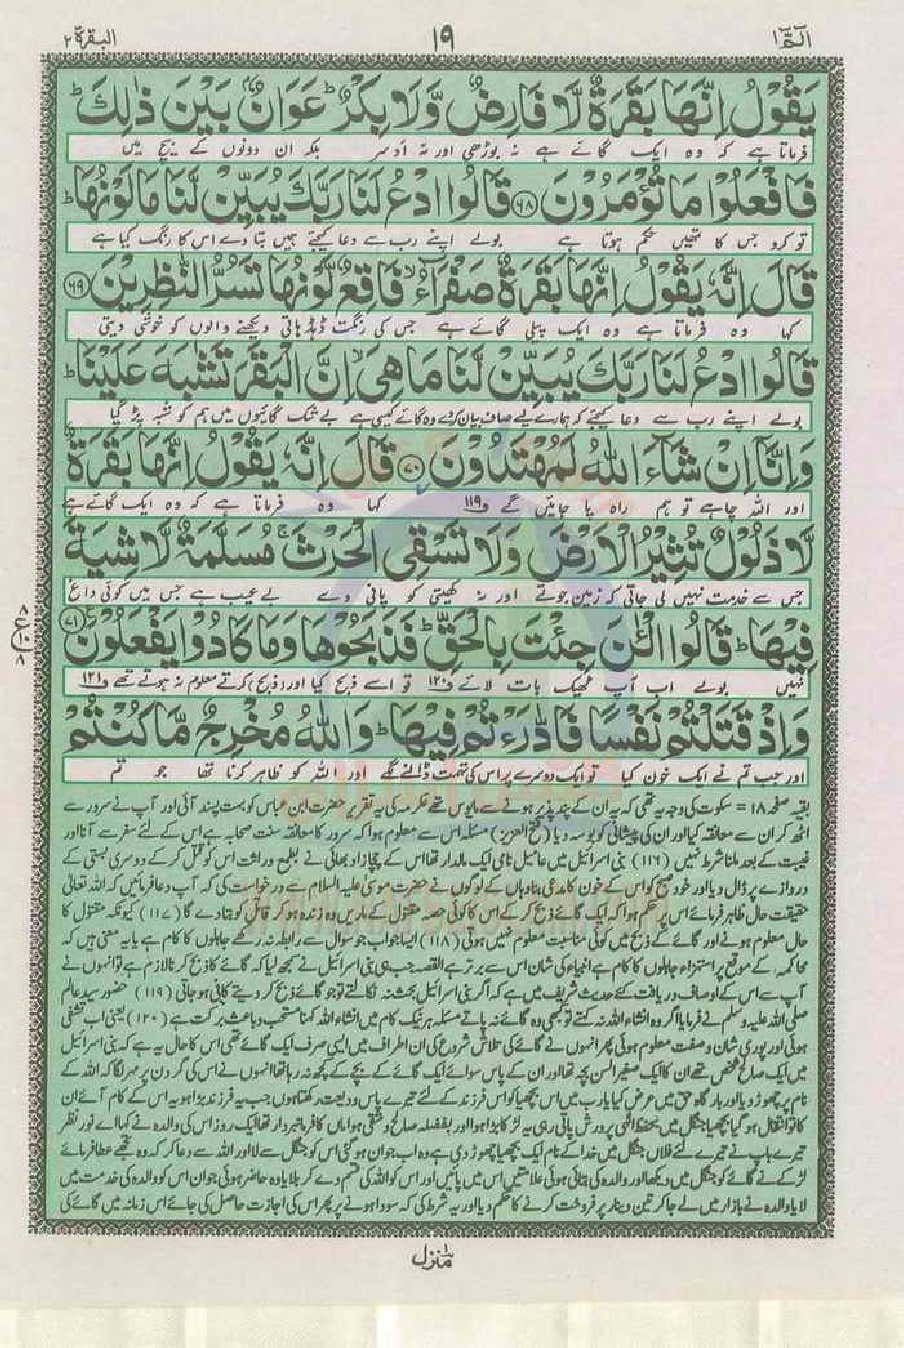 الٓمّٓ ١ ١٩ البقرة ٢
يَقُوْلُ اِنَّهَا بَقَرَةٌ لَّا فَارِضٌ وَّلَا بِكْرٌ ؕ عَوَانٌۢ بَيْنَ ذٰلِكَ ؕ
فرماتا ہے کہ وہ ایک گائے ہے نہ بوڑھی اور نہ اوسر بلکہ ان دونوں کے بیچ میں
فَافْعَلُوْا مَا تُؤْمَرُوْنَ ﴿۶۸﴾ قَالُوا ادْعُ لَنَا رَبَّكَ يُبَيِّنْ لَّنَا مَا لَوْنُهَا ؕ
تو کرو جس کا تمہیں حکم ہوتا ہے بولے اپنے رب سے دعا کیجئے ہمیں بتا دے اس کا رنگ کیا ہے
قَالَ اِنَّهٗ يَقُوْلُ اِنَّهَا بَقَرَةٌ صَفْرَآءُ ۙ فَاقِعٌ لَّوْنُهَا تَسُرُّ النّٰظِرِيْنَ ﴿۶۹﴾
کہا وہ فرماتا ہے وہ ایک پیلی گائے ہے جس کی رنگت ڈہڈہاتی دیکھنے والوں کو خوشی دیتی
قَالُوا ادْعُ لَنَا رَبَّكَ يُبَيِّنْ لَّنَا مَا هِيَ ۙ اِنَّ الْبَقَرَ تَشٰبَهَ عَلَيْنَا ؕ
بولے اپنے رب سے دعا کیجئے کہ ہمارے لیے صاف بیان کردے وہ گائے کیسی ہے بے شک گائیوں میں ہم کو شبہ پڑ گیا
وَاِنَّآ اِنْ شَآءَ اللّٰهُ لَمُهْتَدُوْنَ ﴿۷۰﴾ قَالَ اِنَّهٗ يَقُوْلُ اِنَّهَا بَقَرَةٌ
اور اللہ چاہے تو ہم راہ پا جائیں گے ۱۱۹ کہا وہ فرماتا ہے کہ وہ ایک گائے ہے
لَّا ذَلُوْلٌ تُثِيْرُ الْاَرْضَ وَلَا تَسْقِى الْحَرْثَ ۚ مُسَلَّمَةٌ لَّا شِيَةَ
جس سے خدمت نہیں لی جاتی کہ زمین جوتے اور نہ کھیتی کو پانی دے بے عیب ہے جس میں کوئی داغ
فِيْهَا ؕ قَالُوا الْـٰٔنَ جِئْتَ بِالْحَقِّ ؕ فَذَبَحُوْهَا وَمَا كَادُوْا يَفْعَلُوْنَ ﴿۷۱﴾
نہیں بولے اب آپ ٹھیک بات لائے ۱۲۰ تو اسے ذبح کیا اور (ذبح) کرتے معلوم نہ ہوتے تھے ۱۲۱
وَاِذْ قَتَلْتُمْ نَفْسًا فَادّٰرَءْتُمْ فِيْهَا ؕ وَاللّٰهُ مُخْرِجٌ مَّا كُنْتُمْ
اور جب تم نے ایک خون کیا تو ایک دوسرے پر اس کی تہمت ڈالنے لگے اور اللہ کو ظاہر کرنا تھا جو تم
بقیہ صفحہ ۱۸ = سکوت کی وجہ یہ تھی کہ یہ ان کے چند پذیر ہونے سے مایوس تھے عکرمہ کی یہ تقریر حضرت ابن عباس کو بہت پسند آئی اور آپ نے سرور سے
اٹھ کر ان سے معانقہ کیا اور ان کی پیشانی کو بوسہ دیا (فتح العزیز) مسئلہ اس سے معلوم ہوا کہ سرور کا معانقہ سنت صحابہ ہے اس کے لئے سفر سے آنا اور
غیبت کے بعد ملنا شرط نہیں (۱۱۶) بنی اسرائیل میں عامیل نامی ایک مالدار تھا اس کے چچا زاد بھائی نے بطمع وراثت اس کو قتل کر کے دوسری بستی کے
دروازے پر ڈال دیا اور خود صبح کو اس کے خون کا مدعی بنا وہاں کے لوگوں نے حضرت موسیٰ علیہ السلام سے درخواست کی کہ آپ دعا فرمائیں کہ اللہ تعالیٰ
حقیقت حال ظاہر فرمائے اس پر حکم ہوا کہ ایک گائے ذبح کر کے اس کا کوئی حصہ مقتول کے ماریں وہ زندہ ہو کر قاتل کو بتا دے گا (۱۱۷) کیونکہ مقتول کا
حال معلوم ہونے اور گائے کے ذبح میں کوئی مناسبت معلوم نہیں ہوتی (۱۱۸) ایسا جواب جو سوال سے رابطہ نہ رکھے جاہلوں کا کام ہے یا یہ معنی ہیں کہ
محاکمہ کے موقع پر استہزاء جاہلوں کا کام ہے انبیاء کی شان اس سے برتر ہے القصہ جب بنی اسرائیل نے سمجھ لیا کہ گائے کا ذبح کرنا لازم ہے تو انہوں نے
آپ سے اس کے اوصاف دریافت کئے حدیث شریف میں ہے کہ اگر بنی اسرائیل بحث نہ نکالتے تو جو گائے ذبح کر دیتے کافی ہو جاتی (۱۱۹) حضور سید عالم
صلی اللہ علیہ وسلم نے فرمایا اگر وہ انشاء اللہ نہ کہتے تو کبھی وہ گائے نہ پاتے مسئلہ ہر نیک کام میں انشاء اللہ کہنا مستحب و باعث برکت ہے (۱۲۰) یعنی اب تشفی
ہوئی اور پوری شان و صفت معلوم ہوئی پھر انہوں نے گائے کی تلاش شروع کی ان اطراف میں ایسی صرف ایک گائے تھی اس کا حال یہ ہے کہ بنی اسرائیل
میں ایک صالح شخص تھے ان کا ایک صغیر السن بچہ تھا اور ان کے پاس سوائے ایک گائے کے بچے کے کچھ نہ رہا تھا انہوں نے اس کی گردن پر مہر لگا کر اللہ کے
نام پر چھوڑ دیا اور بارگاہ حق میں عرض کیا یا رب میں اس بچھیا کو اس فرزند کے لئے تیرے پاس ودیعت رکھتا ہوں جب یہ فرزند بڑا ہو یہ اس کے کام آئے ان
کا تو انتقال ہو گیا بچھیا جنگل میں بحفظ الٰہی پرورش پاتی رہی یہ لڑکا بڑا ہوا اور بفضلہ صالح و متقی ہوا ماں کا فرمانبردار تھا ایک روز اس کی والدہ نے کہا اے نور نظر
تیرے باپ نے تیرے لئے فلاں جنگل میں خدا کے نام ایک بچھیا چھوڑ دی ہے وہ اب جوان ہو گئی اس کو جنگل سے لا اور اللہ سے دعا کر کہ وہ تجھے عطا فرمائے
لڑکے نے گائے کو جنگل میں دیکھا اور والدہ کی بتائی ہوئی علامتیں اس میں پائیں اور اس کو اللہ کی قسم دے کر بلایا وہ حاضر ہوئی جوان اس کو والدہ کی خدمت میں
لایا والدہ نے بازار میں لے جا کر تین دینار پر فروخت کرنے کا حکم دیا اور یہ شرط کی کہ سودا ہونے پر پھر اس کی اجازت حاصل کی جائے اس زمانہ میں گائے کی
منزل ۱